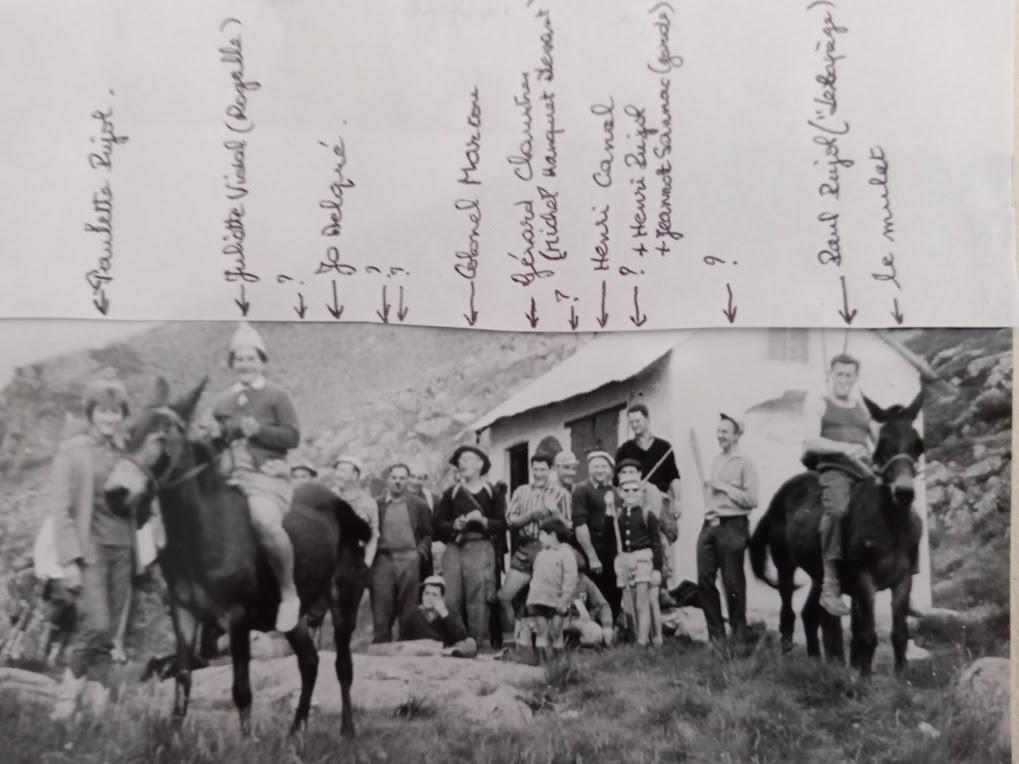 Paulette Pujol.
Juliette Vidal (Rogalle)
?
Jo Delqué.
?
?
Colonel Marcou
Gérard Claustres
(Michel devant)
?
Henri Canal
? + Henri Pujol
+ Jeannot Sannac (garde)
?
Paul Pujol
le mulet